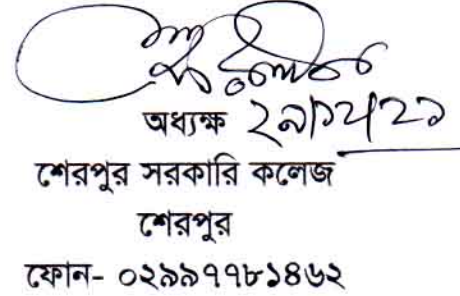 অধ্যক্ষ ২৯/১২/২১
শেরপুর সরকারি কলেজ
শেরপুর
ফোন- ০২৯৯৭৭৮১৪৬২